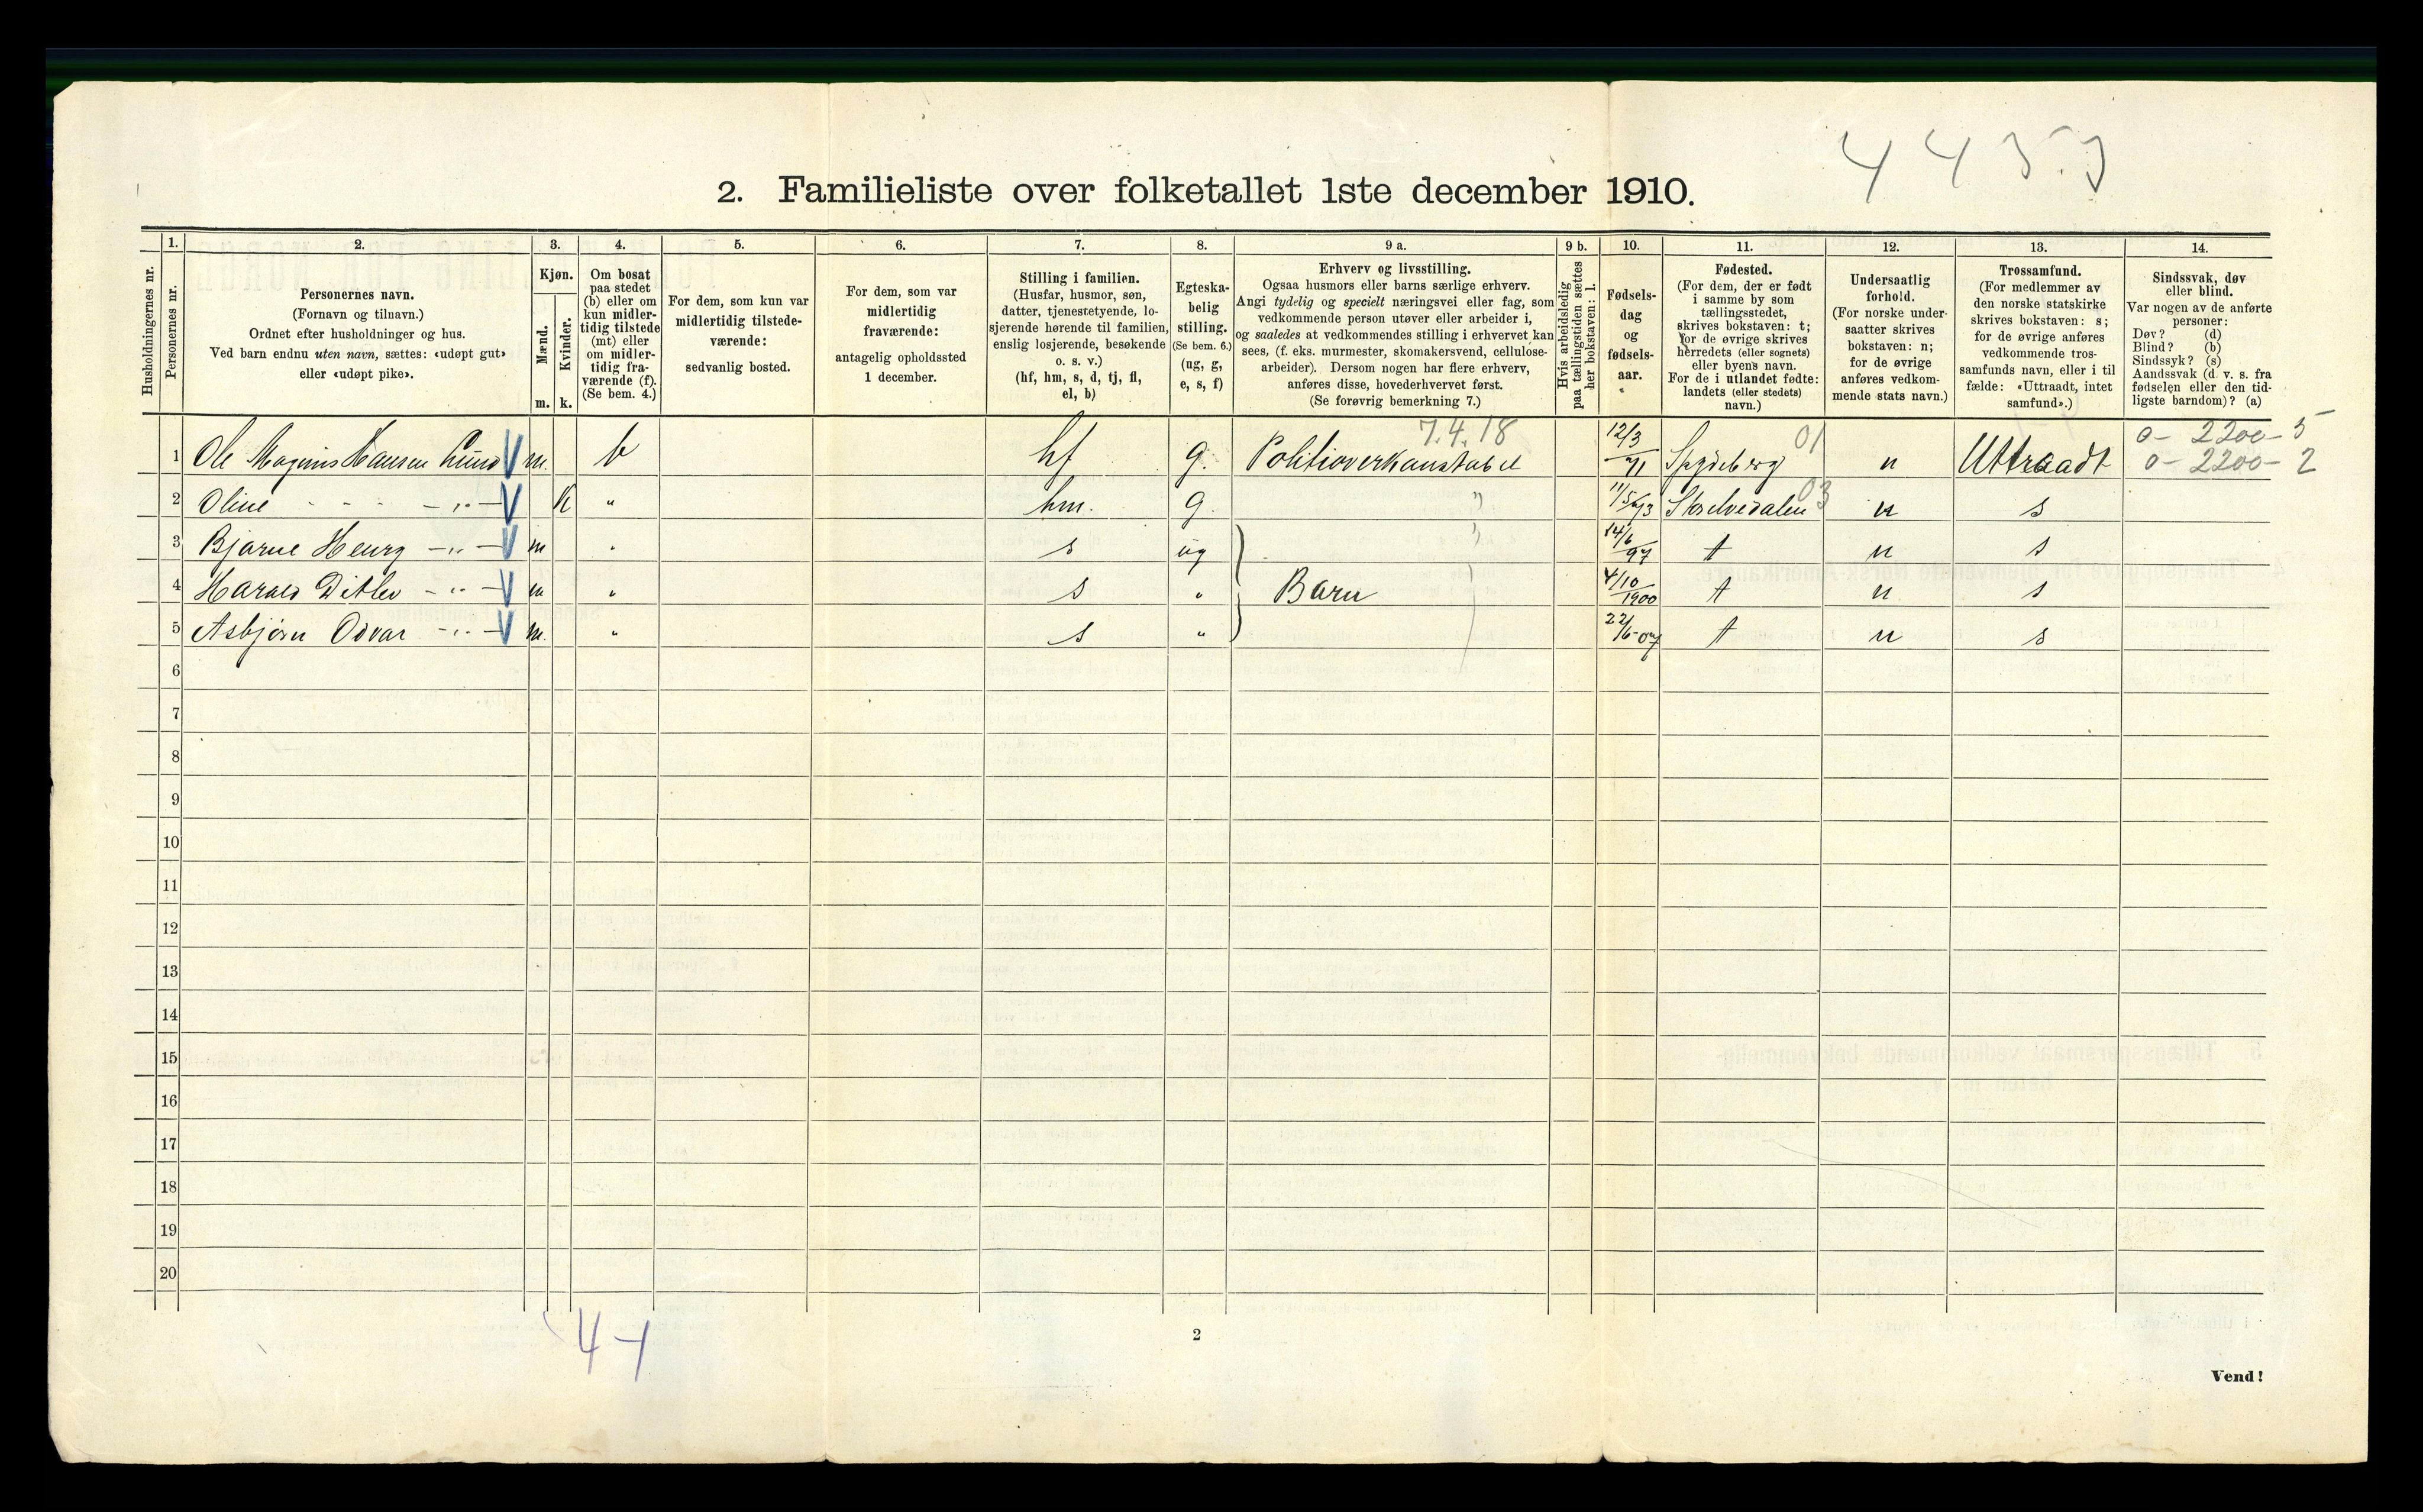 4453
2. Familieliste over folketallet 1ste december 1910.
1. 2. 3. 4. 5. 6. 7. 8. 9 a. 9 b. 10. 11. 12. 13. 14.
Husholdningernes nr.
Personernes nr.
Personernes navn.
(Fornavn og tilnavn.)
Ordnet efter husholdninger og hus.
Ved barn endnu uten navn, sættes: «udøpt gut»
eller «udøpt pike».
Kjøn.
Mænd.
Kvinder.
m. k.
Om bosat
paa stedet
(b) eller om
kun midler-
tidig tilstede
(mt) eller
om midler-
tidig fra-
værende (f).
(Se bem. 4.)
For dem, som kun var
midlertidig tilstede-
værende:
sedvanlig bosted.
For dem, som var
midlertidig
fraværende:
antagelig opholdssted
1 december.
Stilling i familien.
(Husfar, husmor, søn,
datter, tjenestetyende, lo-
sjerende hørende til familien,
enslig losjerende, besøkende
o. s. v.)
(hf, hm, s, d, tj, fl,
el, b)
Egteska-
belig
stilling.
(Se bem. 6.)
(ug, g,
e, s, f)
Erhverv og livsstilling.
Ogsaa husmors eller barns særlige erhverv.
Angi tydelig og specielt næringsvei eller fag, som
vedkommende person utøver eller arbeider i,
og saaledes at vedkommendes stilling i erhvervet kan
sees, (f. eks. murmester, skomakersvend, cellulose-
arbeider). Dersom nogen har flere erhverv,
anføres disse, hovederhvervet først.
(Se forøvrig bemerkning 7.)
Hvis arbeidsledig
paa tællingstiden sættes
her bokstaven: l.
Fødsels-
dag
og
fødsels-
aar.
Fødested.
(For dem, der er født
i samme by som
tællingsstedet,
skrives bokstaven: t;
for de øvrige skrives
herredets (eller sognets)
eller byens navn.
For de i utlandet fødte:
landets (eller stedets)
navn.)
Undersaatlig
forhold.
(For norske under-
saatter skrives
bokstaven: n;
for de øvrige
anføres vedkom-
mende stats navn.)
Trossamfund.
(For medlemmer av
den norske statskirke
skrives bokstaven: s;
for de øvrige anføres
vedkommende tros-
samfunds navn, eller i til
fælde: «Uttraadt, intet
samfund».)
Sindssvak, døv
eller blind.
Var nogen av de anførte
personer:
Døv? (d)
Blind? (b)
Sindssyk? (s)
Aandssvak (d. v. s. fra
fødselen eller den tid-
ligste barndom)? (a)
7.4.18 01 0- 2200- 5
1 Ole Magnus Hansen Lund V m. b hf g. Politioverkonstabel 12/3 71 Spydeberg n Uttraadt 0- 2200- 2
03
2 Oline - - - -"- V k " hm. g. " 11/5 73 Storelvedalen n s
3 Bjarne Henry -"- V m " s ug " 14/6 97 t n s
4 Harald Ditlev -"- V m " s " Barn 4/10 1900 t n s
5 Asbjørn Odvar -"- V m. " s " 22/6-07 t n s
6
7
8
9
10
11
12
13
14
15
16
17
18
19
20
2
Vend!